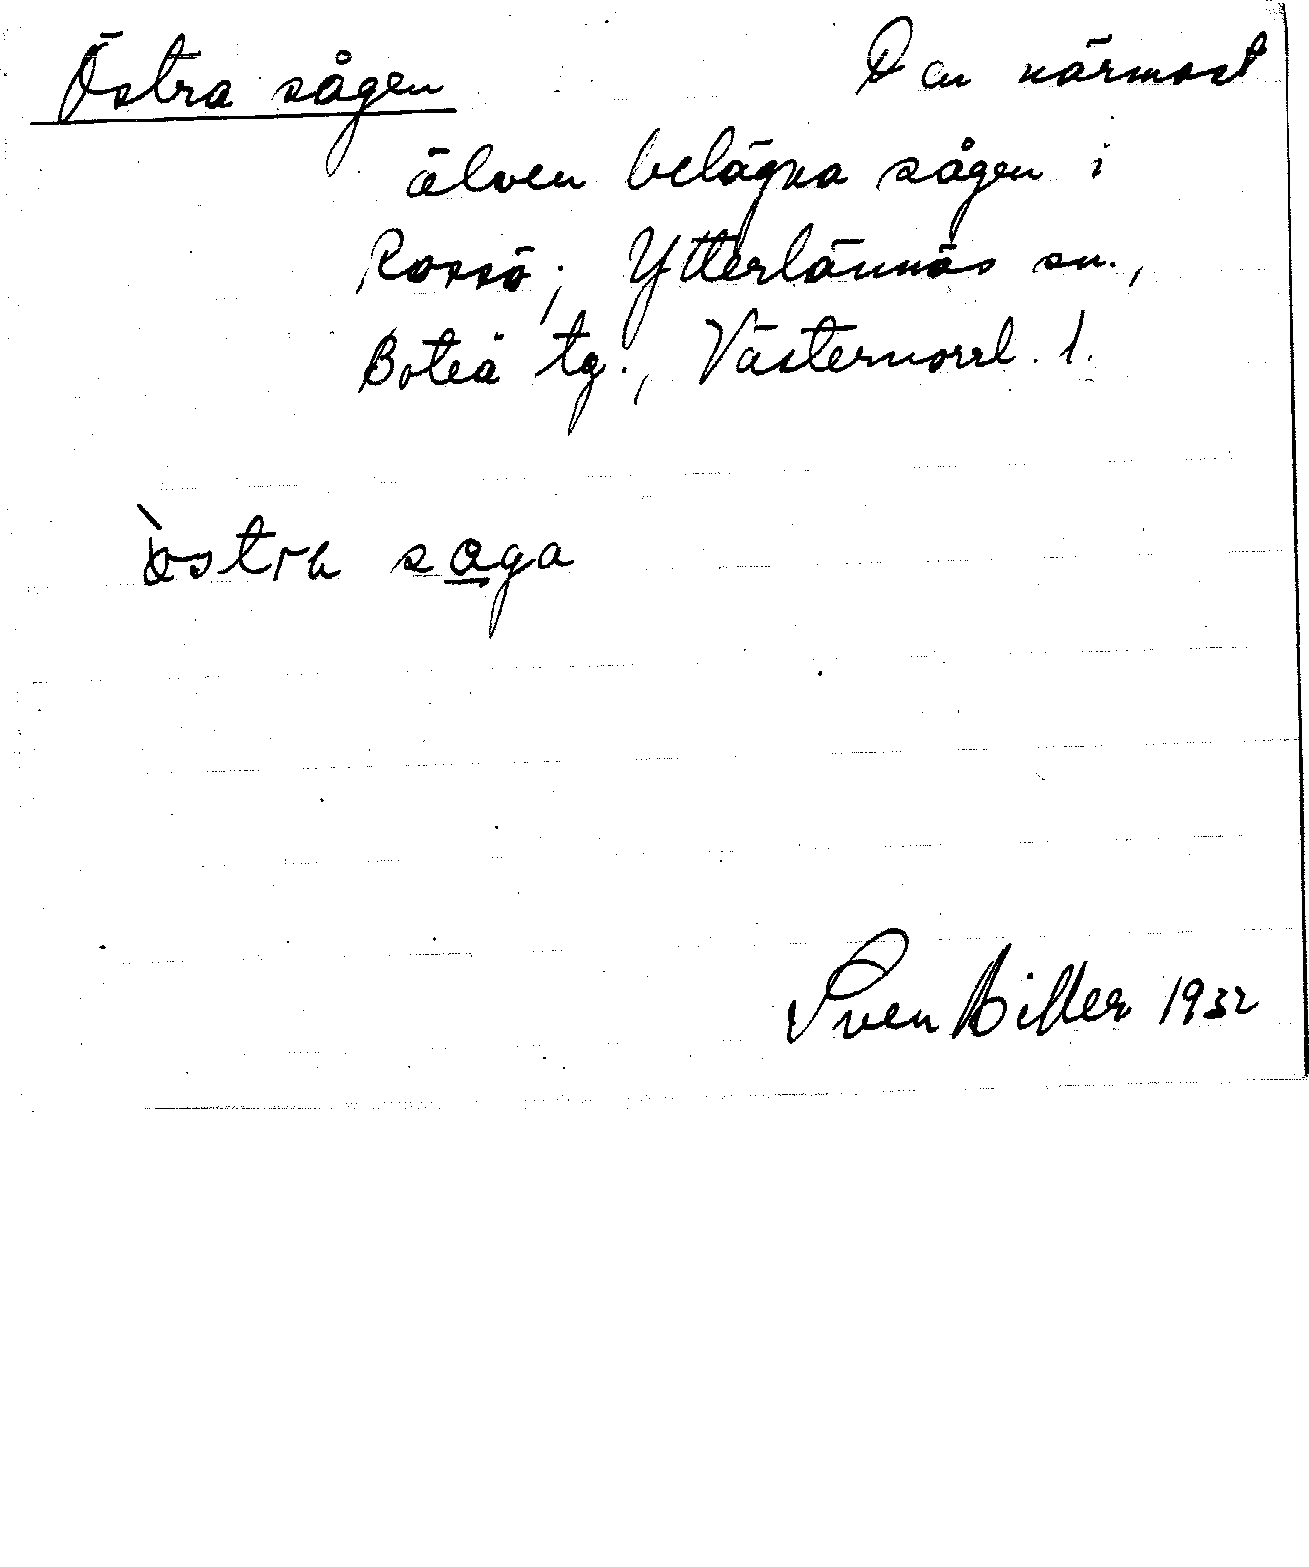 Östra sågen Den närmast
älven belägna sågen i
Rossö; Ytterlännäs sn.,
Boteå tg., Västernorrl. l.
östra saga
Sven Biller 1932